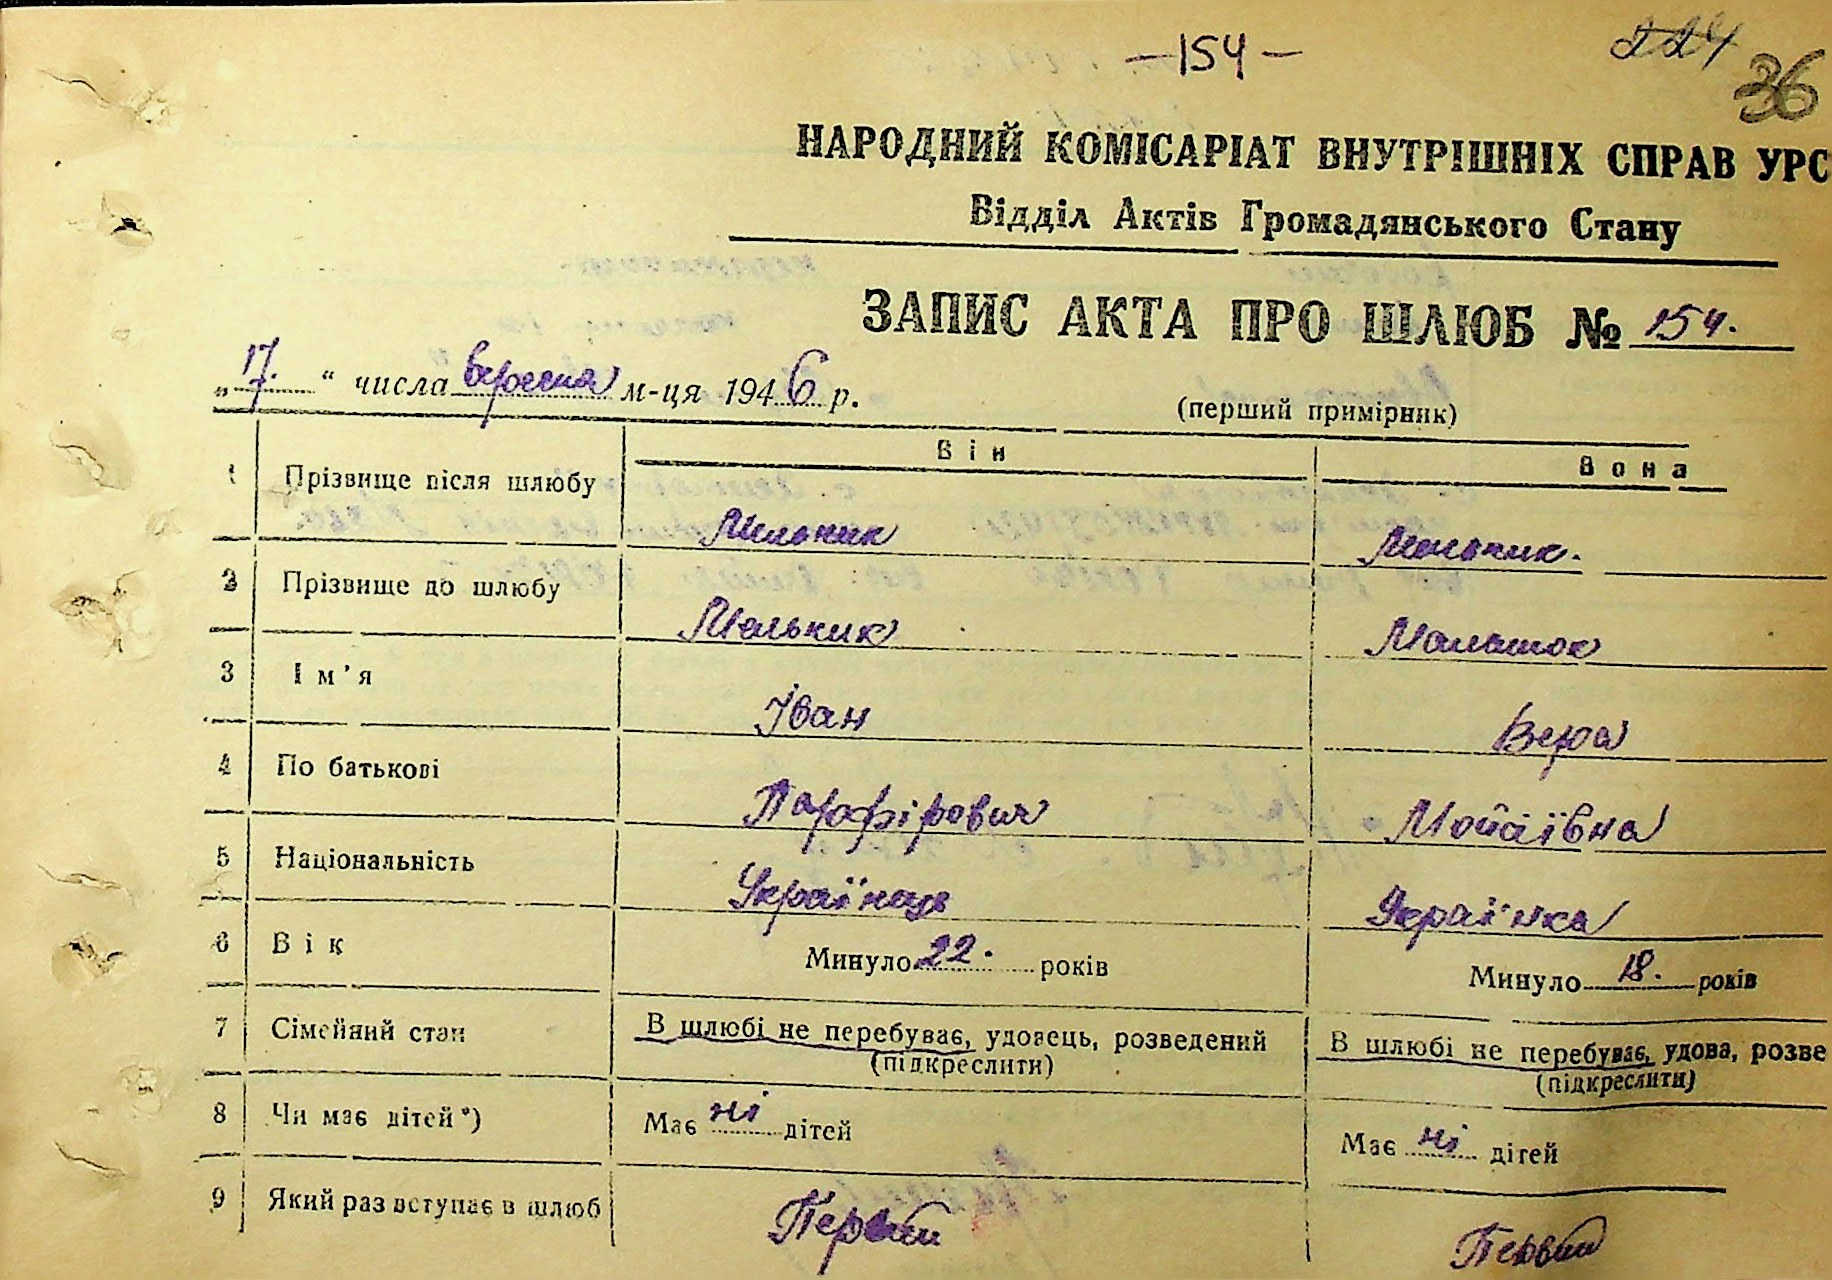 — 154 —
224 36
НАРОДНИЙ КОМІСАРІАТ ВНУТРІШНІХ СПРАВ УРС
Відділ Актів Громадянського Стану
ЗАПИС АКТА ПРО ШЛЮБ № 154.
„17.“ числа вересня м-ця 1946 р.
(перший примірник)
Він Вона
1 Прізвище після шлюбу Мельник Мельник.
2 Прізвище до шлюбу Мельник Малашок
3 Ім'я Іван Вера
4 По батькові Парфірович Мойсіївна
5 Національність Українець Українка
6 Вік Минуло 22. років Минуло 18. років
7 Сімейний стан В шлюбі не перебуває, удовець, розведений В шлюбі не перебуває, удова, розве
(підкреслити) (підкреслити)
8 Чи має дітей*) Має ні дітей Має ні дітей
9 Який раз вступає в шлюб Первий Первий